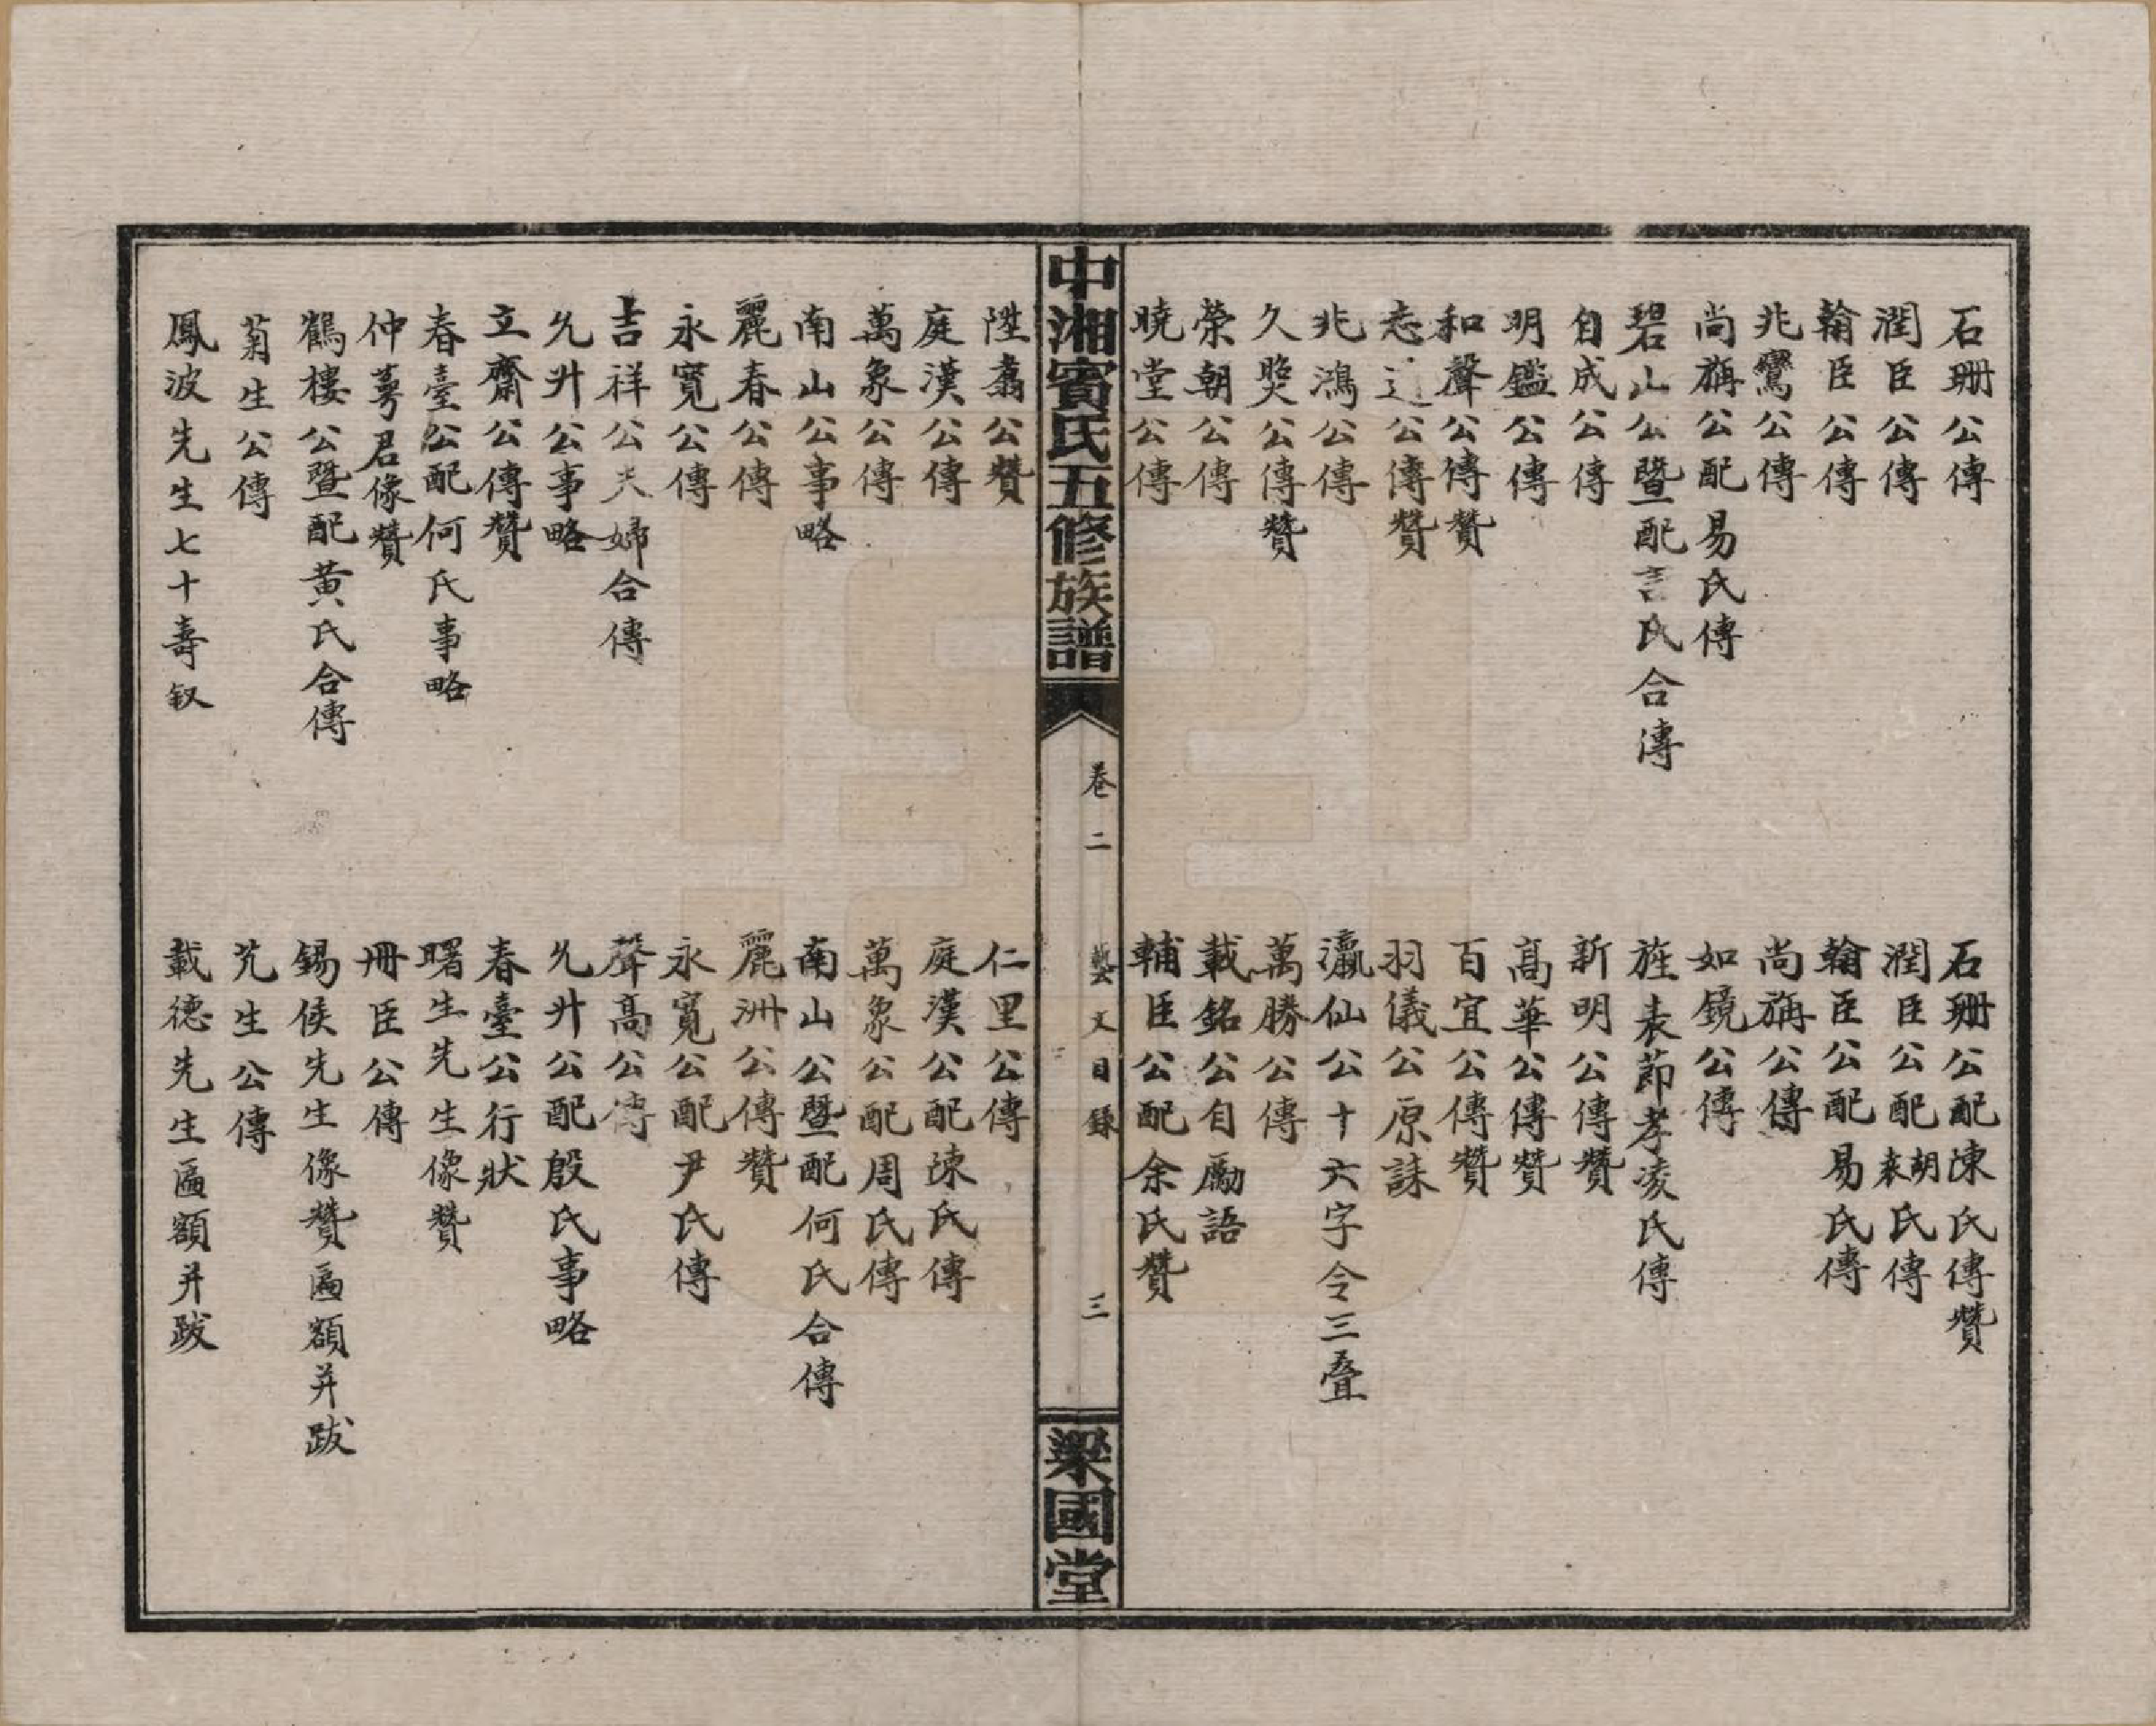 石珊公傳
石珊公配陳氏傳贊
潤臣公傳
潤臣公配胡袁氏傳
翰臣公傳
翰臣公配易氏傳
兆鸞公傳
尚稱公傳
尚稱公配易氏傳
如鏡公傳
碧山公暨配言氏合傳
旌表節孝凌氏傳
自成公傳
新明公傳贊
明鑑公傳
高華公傳贊
和聲公傳贊
百宜公傳贊
志公傳贊
羽儀公原誄
兆鴻公傳
瀛仙公十六字令三疊
久煚公傳贊
萬勝公傳
榮朝公傳
載銘公自勵語
曉堂公傳
輔臣公配余氏贊
中湘賓氏五修族譜
卷二
藝文目錄
三
梁國堂
陞翥公贊
仁里公傳
庭漢公傳
庭漢公配陳氏傳
萬象公傳
萬象公配周氏傳
南山公事略
南山公暨配何氏合傳
麗春公傳
麗洲公傳贊
永寬公傳
永寬公配尹氏傳
吉祥公夫婦合傳
聲高公傳
允升公事略
允升公配殷氏事略
立齋公傳贊
春臺公行狀
春臺公配何氏事略
曙生先生像贊
仲萼君像贊
冊臣公傳
鶴樓公暨配黃氏合傳
錫侯先生像贊匾額并跋
菊生公傳
艽生公傳
鳳波先生七十壽叙
載德先生匾額并跋